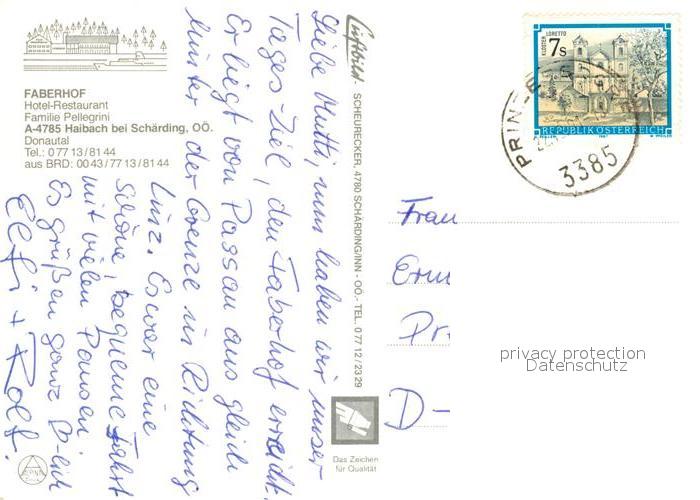 FABERHOF
Hotel-Restaurant
Familie Pellegrini
A-4785 Haibach bei Schärding, OÖ.
Donautal
Tel.: 0 77 13 / 81 44
aus BRD: 00 43 / 77 13 / 81 44
Liebe Mutti, nun haben wir unser
Tages-Ziel, den Faberhof erreicht.
Er liegt von Passau aus gleich
hinter der Grenze in Richtung
Linz. Es war eine
schöne, bequeme Fahrt
mit vielen Pausen.
Es grüßen ganz
Elfi + Rolf.
Luftbild - SCHEURECKER, 4780 SCHÄRDING/INN - OÖ. - TEL. 0 77 12 / 23 29
Das Zeichen
für Qualität
KLOSTER LORETTO
7s
REPUBLIK ÖSTERREICH
PRIN
3385
Frau
D-
privacy protection
Datenschutz